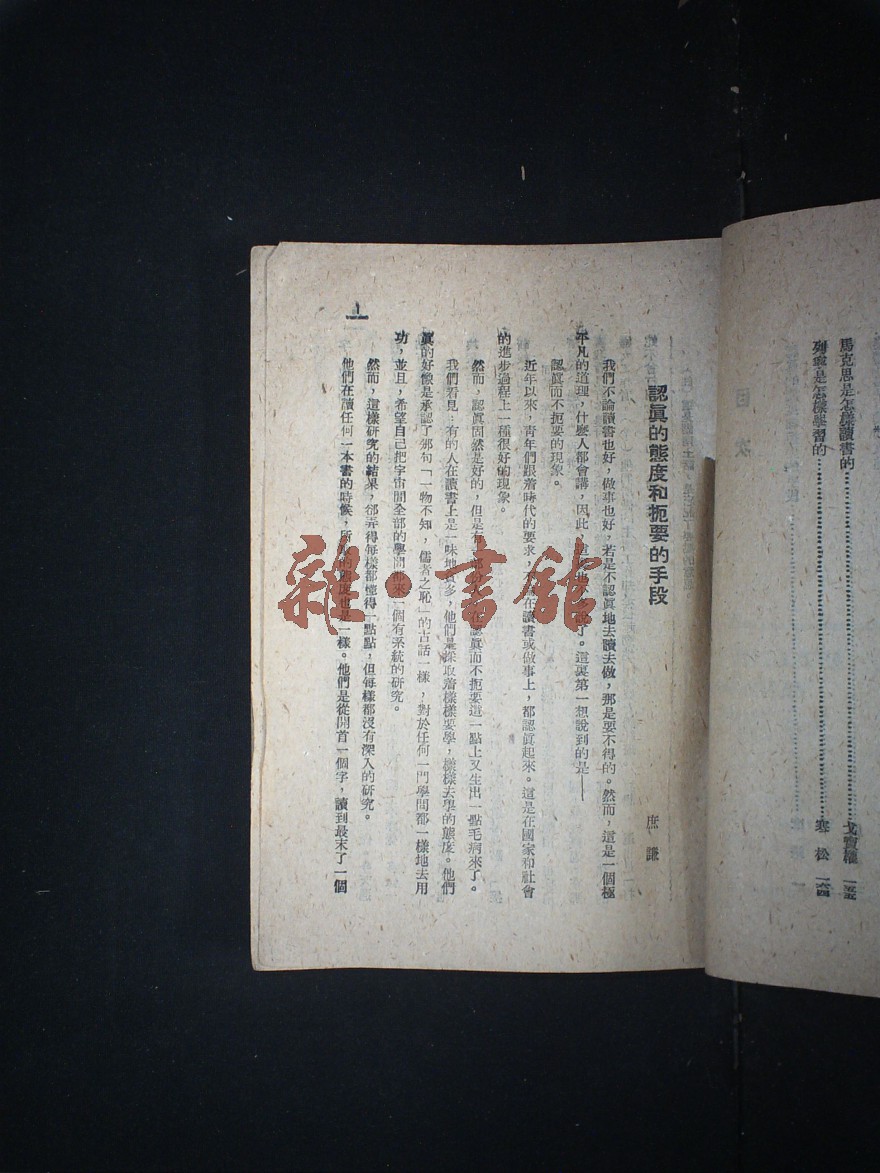 馬克思是怎樣讀書的…………戈寶權 一五五
列寧是怎樣學習的…………寒松 一六四
認眞的態度和扼要的手段
庶謙
我們不論讀書也好，做事也好，若是不認眞地去讀去做，那是要不得的。然而，這是一個極
平凡的道理，什麽人都會講，因此，這裏也不多說了。這裏第一想說到的是——
認眞而不扼要的現象。
近年以來，青年們跟着時代的要求，不論在讀書或做事上，都認眞起來。這是在國家和社會
的進步過程上一種很好的現象。
然而，認眞固然是好的，但是有一部分人，在認眞而不扼要這一點上又生出一點毛病來了。
我們看見：有的人在讀書上是一味地貪多，他們是採取着樣樣要學，樣樣去學的態度。他們
眞的好像是承認了那句「一物不知，儒者之恥」的古話一樣，對於任何一門學問都一樣地去用
功，並且，希望自己把宇宙間全部的學問都來一個有系統的研究。
然而，這樣研究的結果，卻弄得每樣都懂得一點點，但每樣都沒有深入的研究。
他們在讀任何一本書的時候，所取的態度也是一樣。他們是從開首一個字，讀到最末了一個
1
雜·書館